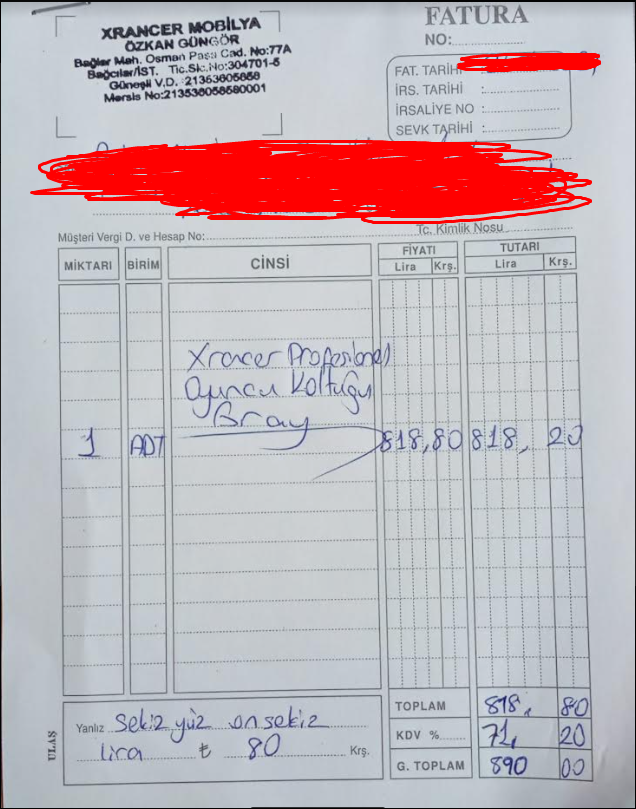 XRANCER MOBİLYA
ÖZKAN GÜNGÖR
Bağlar Mah. Osman Paşa Cad. No:77A
Bağcılar/İST. Tic.Sic.No:304701-5
Güneşli V.D. :21353605858
Mersis No:213536058580001
FATURA
NO:
FAT. TARİHİ
İRS. TARİHİ :
İRSALİYE NO :
SEVK TARİHİ :
Müşteri Vergi D. ve Hesap No: Tc. Kimlik Nosu
MİKTARI BİRİM CİNSİ FİYATI TUTARI
Lira Krş. Lira Krş.
Xrancer Profesionel
Oyuncu Koltuğu
Bray
1 ADT 818,80 818, 20
Yanlız Sekiz yüz onsekiz
lira ₺ 80 Krş.
TOPLAM 818, 80
KDV % 71, 20
G. TOPLAM 890 00
ULAŞ